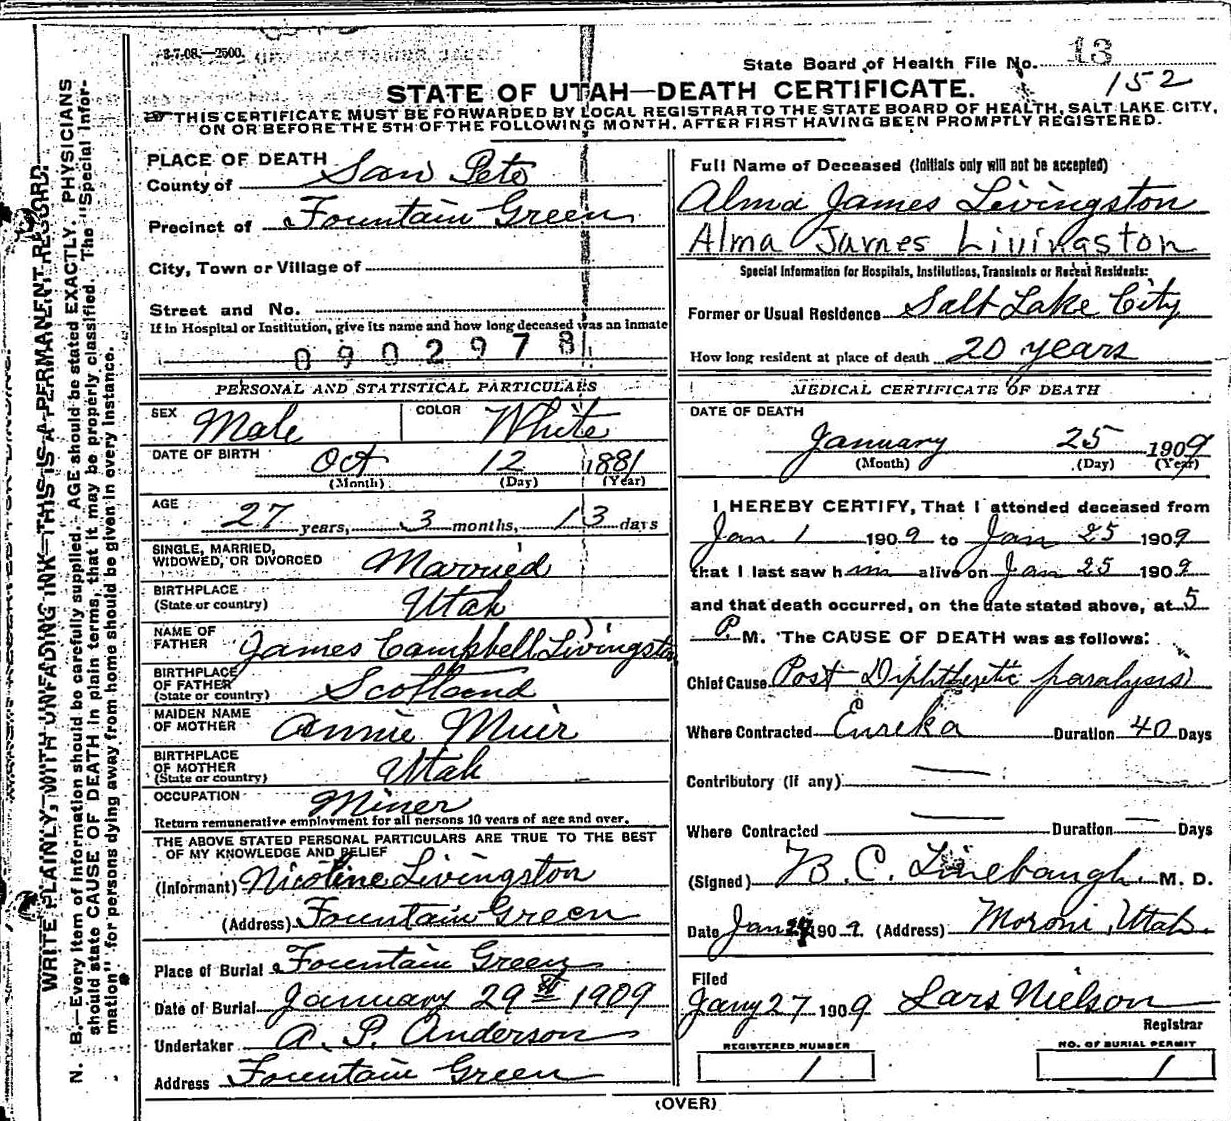 3-7-08.—2500.
State Board of Health File No. 13
152
STATE OF UTAH—DEATH CERTIFICATE.
THIS CERTIFICATE MUST BE FORWARDED BY LOCAL REGISTRAR TO THE STATE BOARD OF HEALTH, SALT LAKE CITY,
ON OR BEFORE THE 5TH OF THE FOLLOWING MONTH, AFTER FIRST HAVING BEEN PROMPTLY REGISTERED.
WRITE PLAINLY, WITH UNFADING INK—THIS IS A PERMANENT RECORD.
N. B.—Every item of information should be carefully supplied. AGE should be stated EXACTLY. PHYSICIANS
should state CAUSE OF DEATH in plain terms, that it may be properly classified. The "Special Infor-
mation" for persons dying away from home should be given in every instance.
PLACE OF DEATH
County of San Pete
Precinct of Fountain Green
City, Town or Village of
Street and No.
If in Hospital or Institution, give its name and how long deceased was an inmate
0902978
PERSONAL AND STATISTICAL PARTICULARS
SEX Male COLOR White
DATE OF BIRTH Oct 12 1881
(Month) (Day) (Year)
AGE 27 years, 3 months, 13 days
SINGLE, MARRIED,
WIDOWED, OR DIVORCED Married
BIRTHPLACE
(State or country) Utah
NAME OF
FATHER James Campbell Livingston
BIRTHPLACE
OF FATHER
(State or country) Scotland
MAIDEN NAME
OF MOTHER Annie Muir
BIRTHPLACE
OF MOTHER
(State or country) Utah
OCCUPATION Miner
Return remunerative employment for all persons 10 years of age and over.
THE ABOVE STATED PERSONAL PARTICULARS ARE TRUE TO THE BEST
OF MY KNOWLEDGE AND BELIEF
(Informant) Nicoline Livingston
(Address) Fountain Green
Place of Burial Fountain Green
Date of Burial January 29th 1909
Undertaker A. P. Anderson
Address Fountain Green
Full Name of Deceased (Initials only will not be accepted)
Alma James Livingston
Alma James Livingston
Special Information for Hospitals, Institutions, Transients or Recent Residents:
Former or Usual Residence Salt Lake City
How long resident at place of death 20 years
MEDICAL CERTIFICATE OF DEATH
DATE OF DEATH
January 25 1909
(Month) (Day) (Year)
I HEREBY CERTIFY, That I attended deceased from
Jan 1 1909 to Jan 25 1909
that I last saw him alive on Jan 25 1909
and that death occurred, on the date stated above, at 5
P. M. The CAUSE OF DEATH was as follows:
Chief Cause Post-Diphtheritic paralysis
Where Contracted Eureka Duration 40 Days
Contributory (if any) —
Where Contracted — Duration — Days
(Signed) B. C. Linebaugh M. D.
Date Jan 1909. (Address) Moroni, Utah.
Filed
Jany 27 1909 Lars Nielson
Registrar
REGISTERED NUMBER NO. OF BURIAL PERMIT
1 1
(OVER)